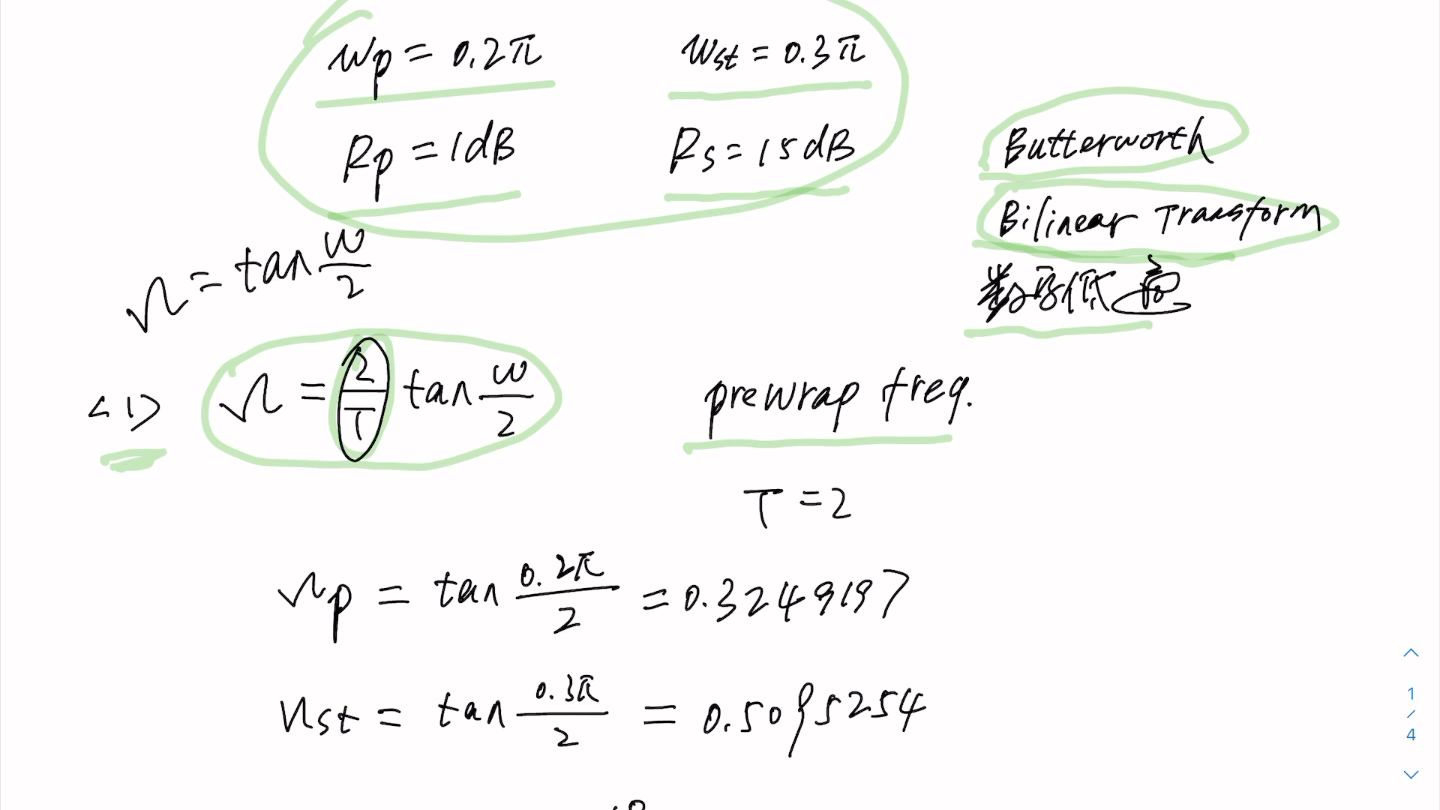 wp = 0.2π wst = 0.3π
Rp = 1dB Rs = 15dB
Butterworth
Bilinear Transform
数字低通
Ω = tan w/2
<1> Ω = 2/T tan w/2
prewrap freq.
T = 2
Ωp = tan 0.2π/2 = 0.3249197
Ωst = tan 0.3π/2 = 0.5095254
1
/
4